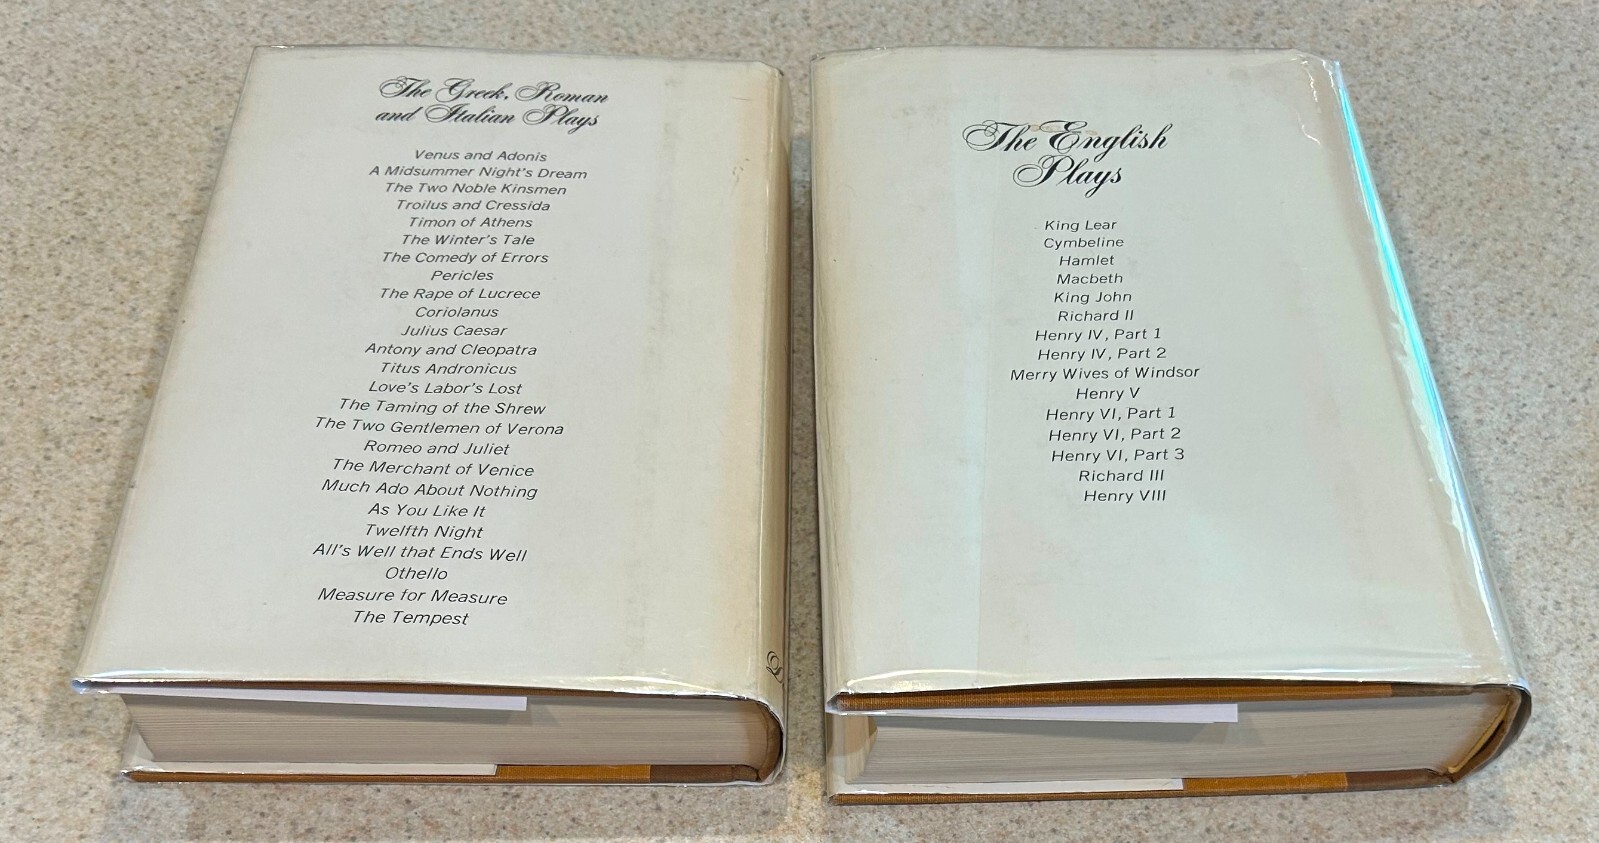 The Greek, Roman
and Italian Plays
Venus and Adonis
A Midsummer Night's Dream
The Two Noble Kinsmen
Troilus and Cressida
Timon of Athens
The Winter's Tale
The Comedy of Errors
Pericles
The Rape of Lucrece
Coriolanus
Julius Caesar
Antony and Cleopatra
Titus Andronicus
Love's Labor's Lost
The Taming of the Shrew
The Two Gentlemen of Verona
Romeo and Juliet
The Merchant of Venice
Much Ado About Nothing
As You Like It
Twelfth Night
All's Well that Ends Well
Othello
Measure for Measure
The Tempest
The English
Plays
King Lear
Cymbeline
Hamlet
Macbeth
King John
Richard II
Henry IV, Part 1
Henry IV, Part 2
Merry Wives of Windsor
Henry V
Henry VI, Part 1
Henry VI, Part 2
Henry VI, Part 3
Richard III
Henry VIII